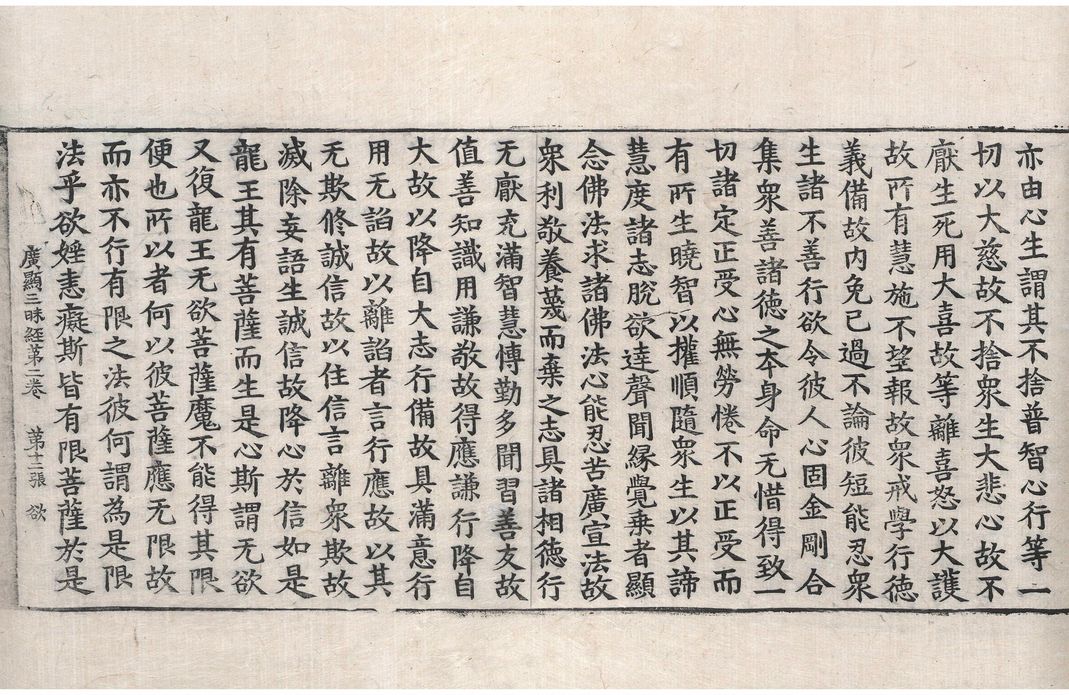 亦由心生謂其不捨普智心行等一
切以大慈故不捨衆生大悲心故不
厭生死用大喜故等離喜怒以大護
故所有慧施不望報故衆戒學行德
義備故内免己過不論彼短能忍衆
生諸不善行欲令彼人心固金剛合
集衆善諸德之本身命无惜得致一
切諸定正受心無勞惓不以正受而
有所生曉智以權順隨衆生以其諦
慧度諸志脫欲達聲聞縁覺乗者顯
念佛法求諸佛法心能忍苦廣宣法故
衆利敬養蔑而棄之志具諸相德行
无厭充滿智慧慱勤多聞習善友故
值善知識用謙敬故得應謙行降自
大故以降自大志行備故具滿意行
用无諂故以離諂者言行應故以其
无欺修誠信故以住信言離衆欺故
滅除妄語生誠信故降心於信如是
龍王其有菩薩而生是心斯謂无欲
又復龍王无欲菩薩魔不能得其限
便也所以者何以彼菩薩應无限故
而亦不行有限之法彼何謂為是限
法乎欲婬恚癡斯皆有限菩薩於是
廣顯三昧経第二卷 第十二張 欲